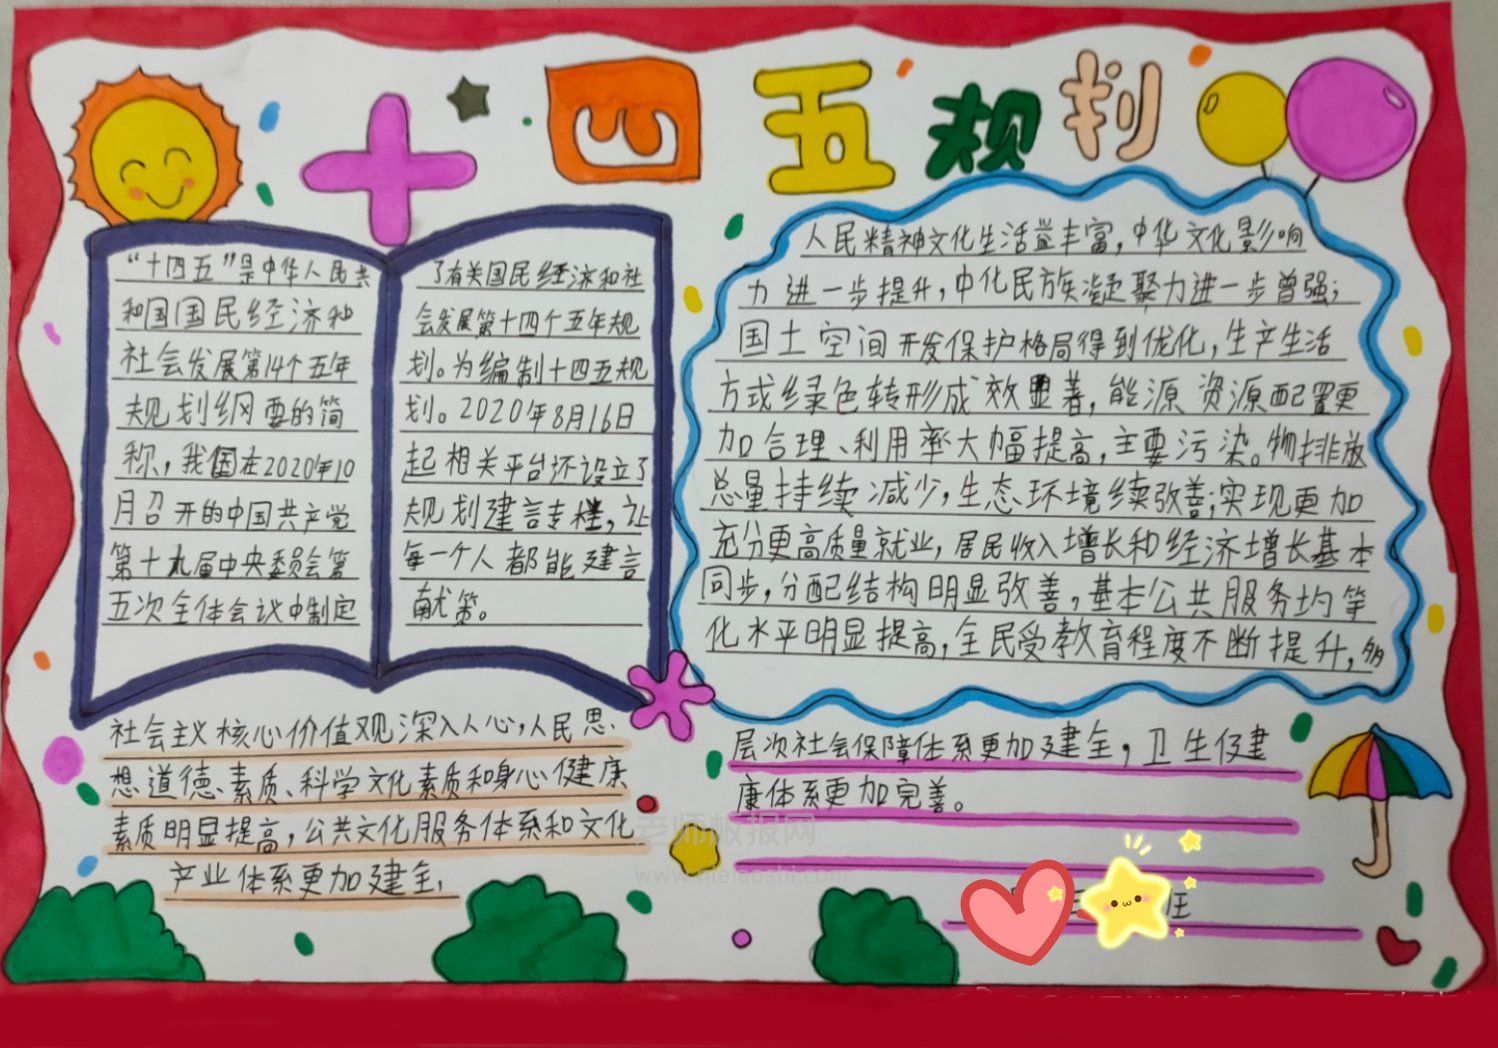 十四五规划
“十四五”是中华人民共
和国国民经济和
社会发展第14个五年
规划纲要的简
称,我国在2020年10
月召开的中国共产党
第十九届中央委员会第
五次全体会议中制定
了有关国民经济和社
会发展第十四个五年规
划。为编制十四五规
划。2020年8月16日
起相关平台还设立了
规划建言专栏,让
每一个人都能建言
献策。
人民精神文化生活益丰富,中华文化影响
力进一步提升,中化民族凝聚力进一步曾强;
国土空间开发保护格局得到优化,生产生活
方式绿色转形成效显著,能源资源配置更
加合理、利用率大幅提高,主要污染。物排放
总量持续减少,生态环境续改善;实现更加
充分更高质量就业,居民收入增长和经济增长基本
同步,分配结构明显改善,基本公共服务均等
化水平明显提高,全民受教育程度不断提升,多
社会主义核心价值观深入人心,人民思
想道德素质、科学文化素质和身心健康
素质明显提高,公共文化服务体系和文化
产业体系更加建全,
层次社会保障体系更加建全,卫生健
康体系更加完善。
老师板报网